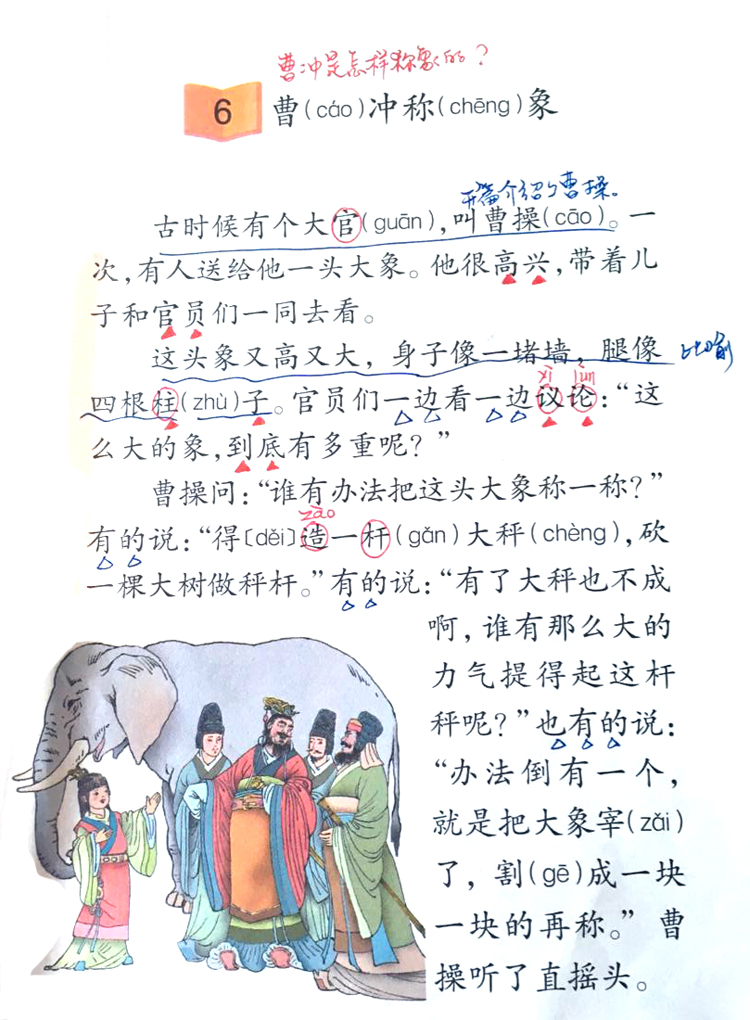 曹冲是怎样称象的？
6 曹(cáo)冲称(chēng)象
开篇介绍了曹操。
古时候有个大官(guān),叫曹操(cāo)。一
次,有人送给他一头大象。他很高兴,带着儿
子和官员们一同去看。
这头象又高又大，身子像一堵墙，腿像 比喻
yì lùn
四根柱(zhù)子。官员们一边看一边议论:“这
么大的象,到底有多重呢？”
曹操问:“谁有办法把这头大象称一称？”
zào
有的说:“得〔děi〕造一杆(gǎn)大秤(chèng),砍
一棵大树做秤杆。”有的说:“有了大秤也不成
啊,谁有那么大的
力气提得起这杆
秤呢？”也有的说:
“办法倒有一个,
就是把大象宰(zǎi)
了，割(gē)成一块
一块的再称。”曹
操听了直摇头。